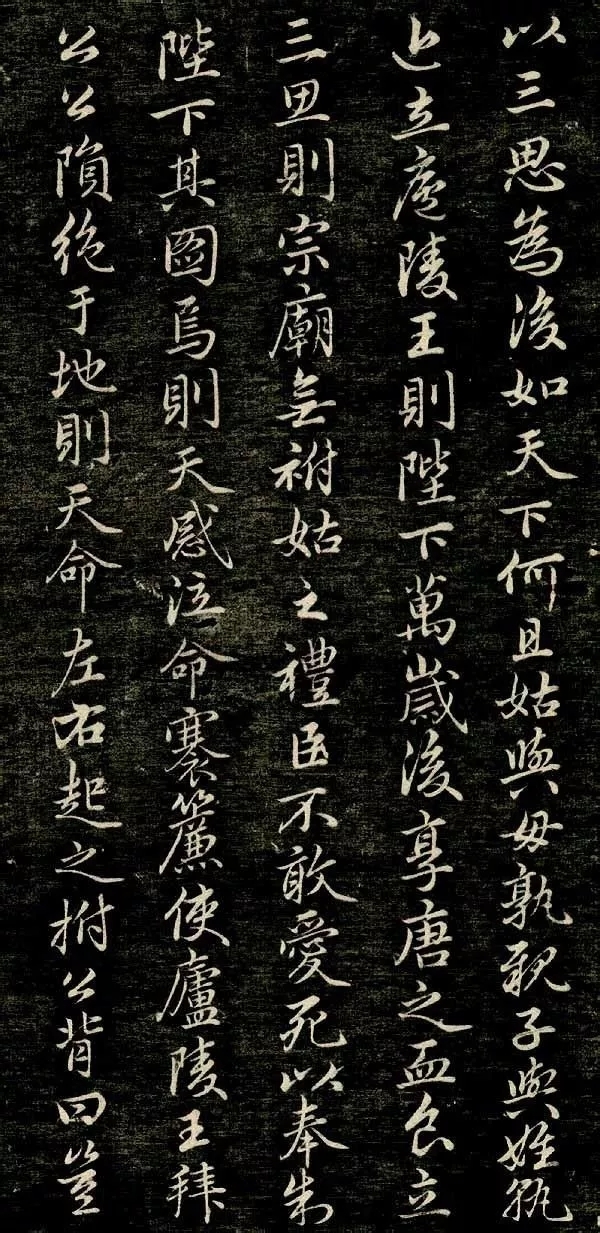 以三思為後如天下何且姑與母孰親子與姪孰
近立廬陵王則陛下萬歲後享唐之血食立
三思則宗廟無祔姑之禮臣不敢愛死以奉制
陛下其圖焉則天感泣命褰簾使廬陵王拜
公公隕絕于地則天命左右起之拊公背曰豈